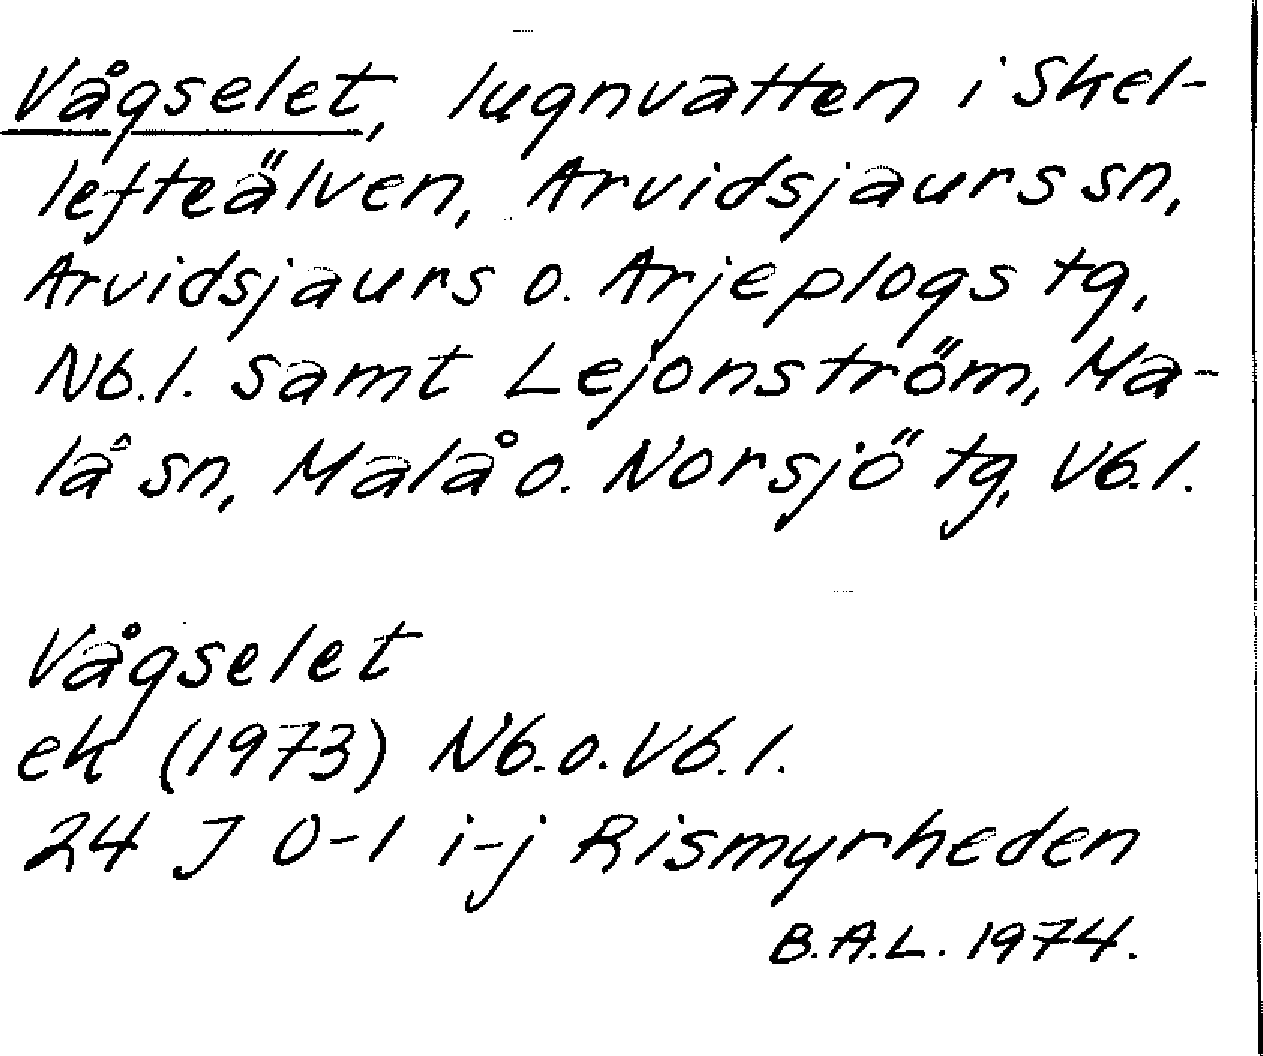 Vågselet, lugnvatten i Skel-
lefteälven, Arvidsjaurs sn,
Arvidsjaurs o. Arjeplogs tg,
Nb.l. samt Lejonström, Ma-
lå sn, Malå o. Norsjö tg, Vb.l.
Vågselet
ek (1973) Nb.o.Vb.l.
24 J 0-1 i-j Rismyrheden
B.A.L. 1974.